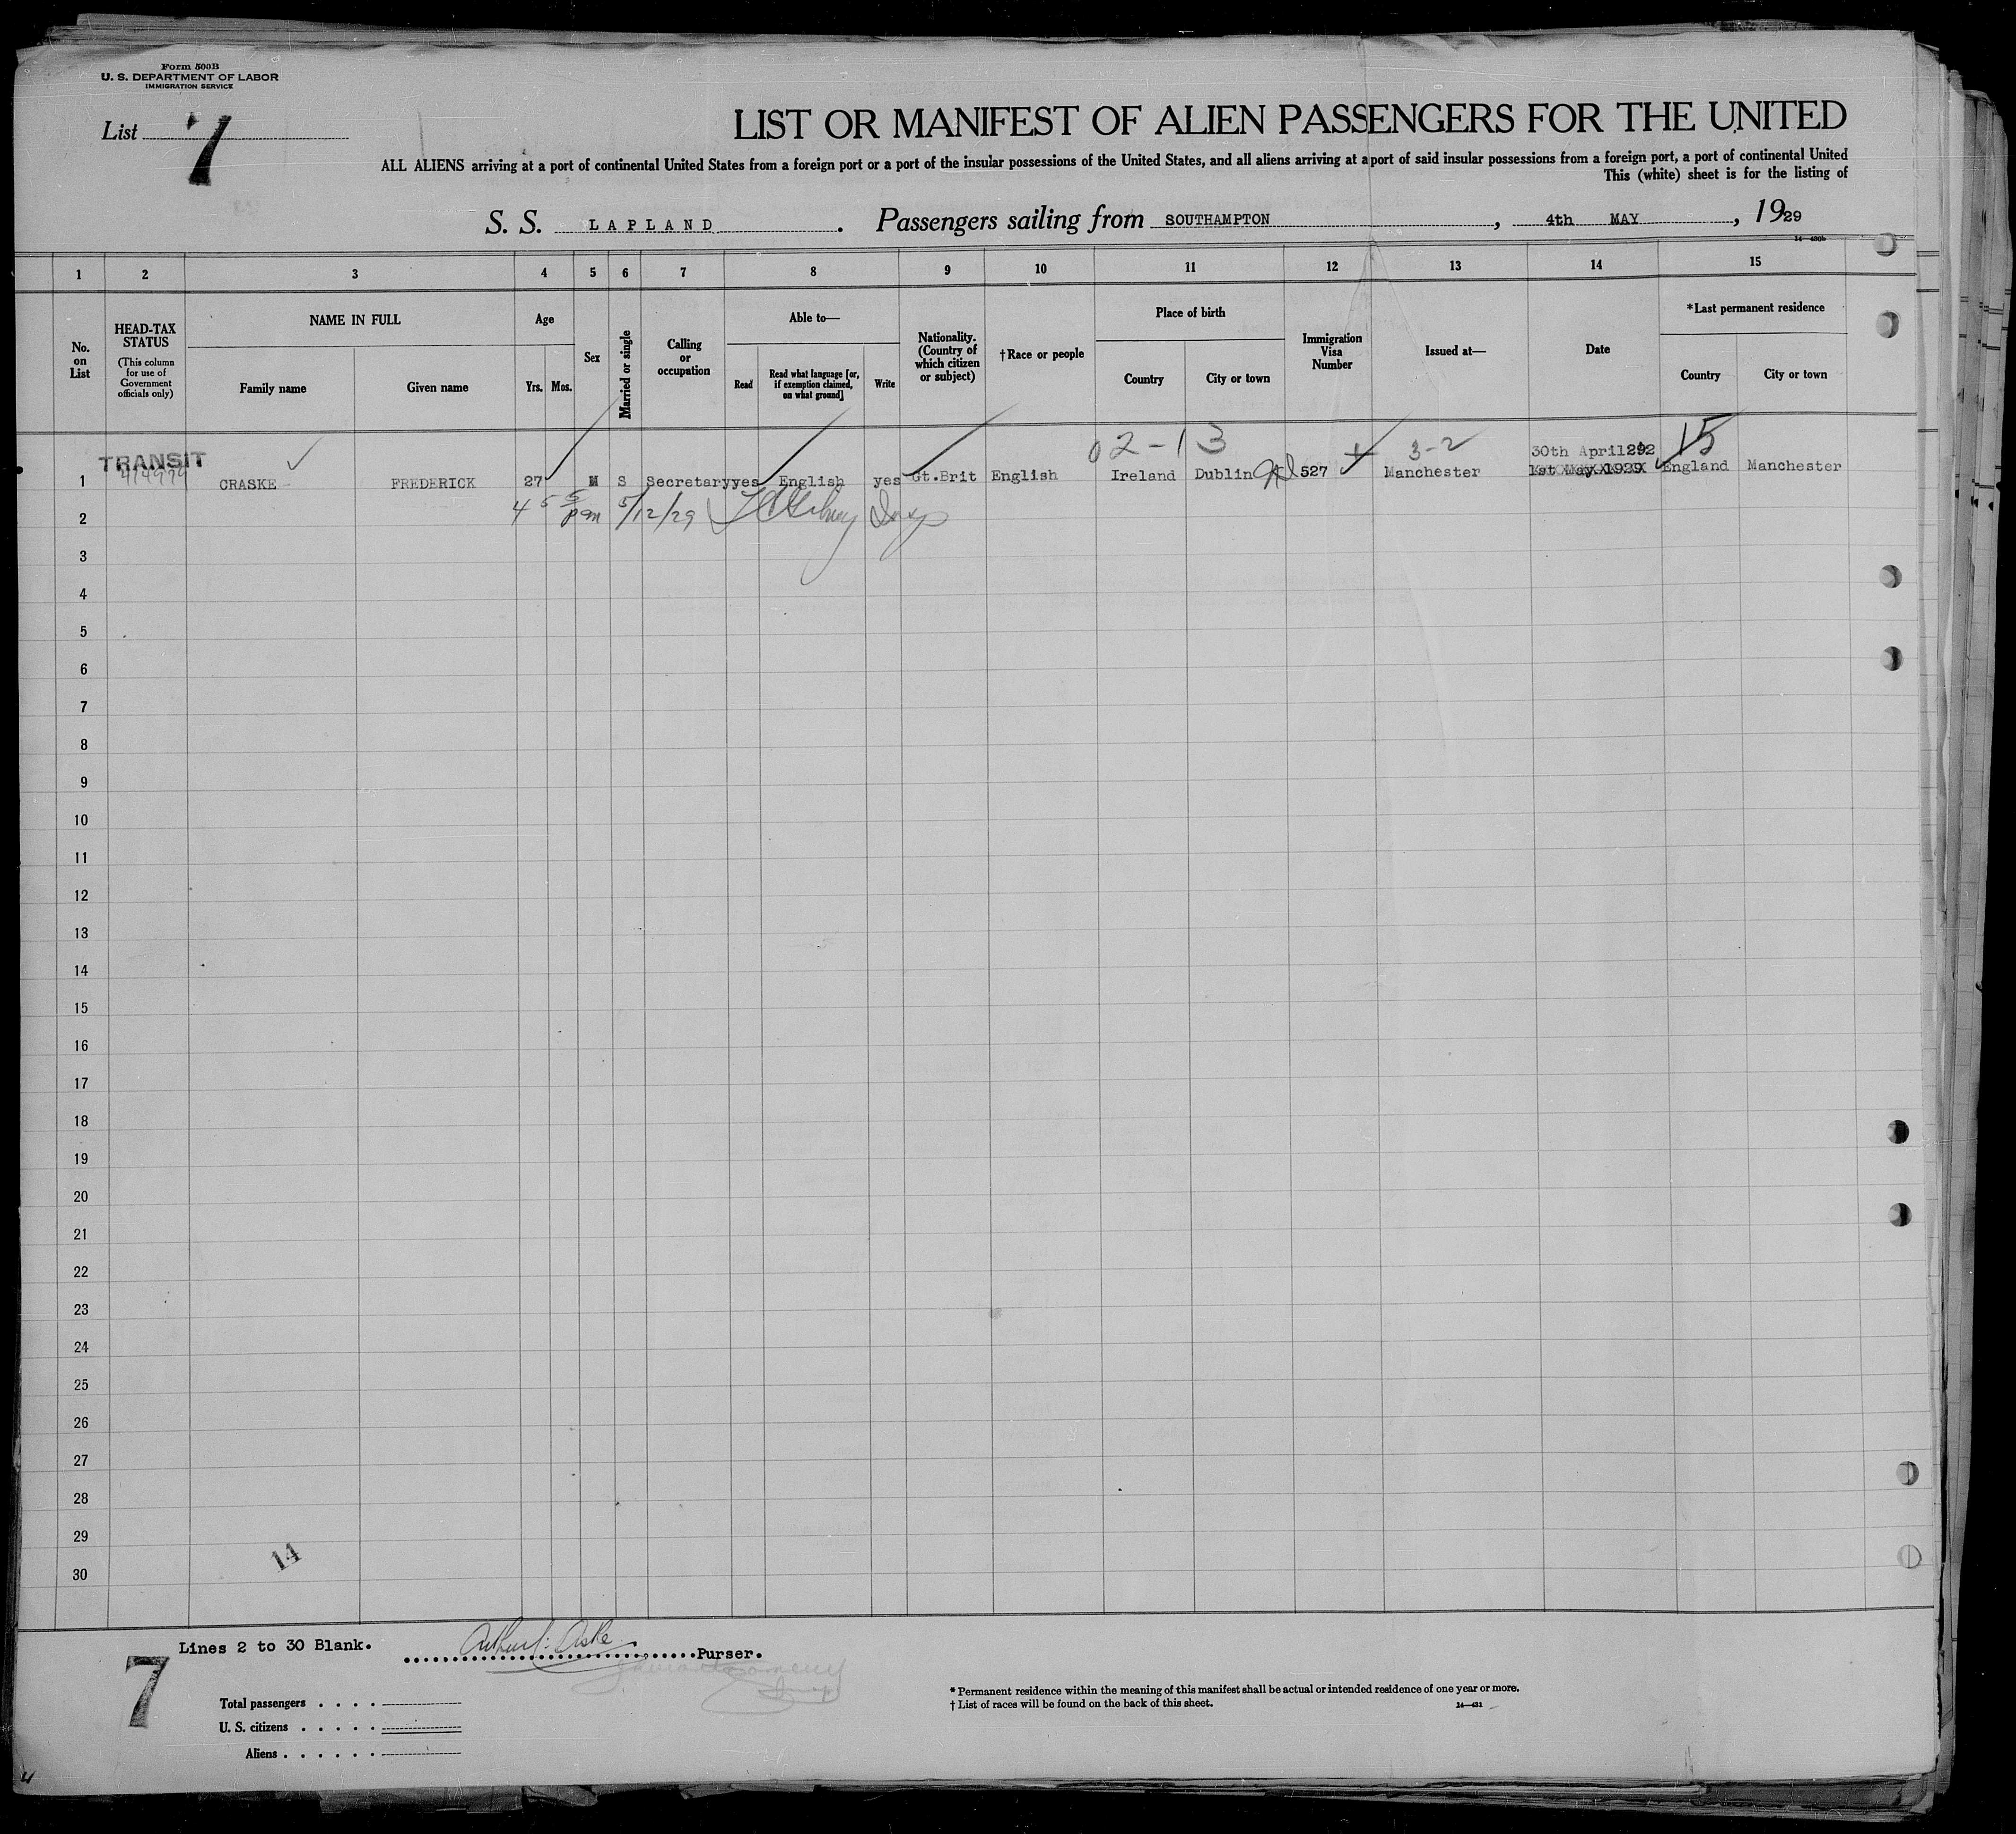 Form 500B
U. S. DEPARTMENT OF LABOR
IMMIGRATION SERVICE
List 7
LIST OR MANIFEST OF ALIEN PASSENGERS FOR THE UNITED
ALL ALIENS arriving at a port of continental United States from a foreign port or a port of the insular possessions of the United States, and all aliens arriving at a port of said insular possessions from a foreign port, a port of continental United
This (white) sheet is for the listing of
S. S. LAPLAND . Passengers sailing from SOUTHAMPTON , 4th MAY , 1929
1 2 3 4 5 6 7 8 9 10 11 12 13 14 15
No. on List
HEAD-TAX STATUS
(This column for use of Government officials only)
NAME IN FULL
Family name
Given name
Age
Yrs. Mos.
Sex
Married or single
Calling or occupation
Able to—
Read
Read what language [or, if exemption claimed, on what ground]
Write
Nationality. (Country of which citizen or subject)
†Race or people
Place of birth
Country
City or town
Immigration Visa Number
Issued at—
Date
*Last permanent residence
Country
City or town
02-13 3-2 30th April 15
TRANSIT
1 CRASKE FREDERICK 27 M S Secretary yes English yes Gt.Brit English Ireland Dublin 527 Manchester 1st May 1929 England Manchester
2 5/12/29
3
4
5
6
7
8
9
10
11
12
13
14
15
16
17
18
19
20
21
22
23
24
25
26
27
28
29
30
14
Lines 2 to 30 Blank.
Purser.
7
Total passengers . . . .
U. S. citizens . . . . .
Aliens . . . . . .
* Permanent residence within the meaning of this manifest shall be actual or intended residence of one year or more.
† List of races will be found on the back of this sheet.